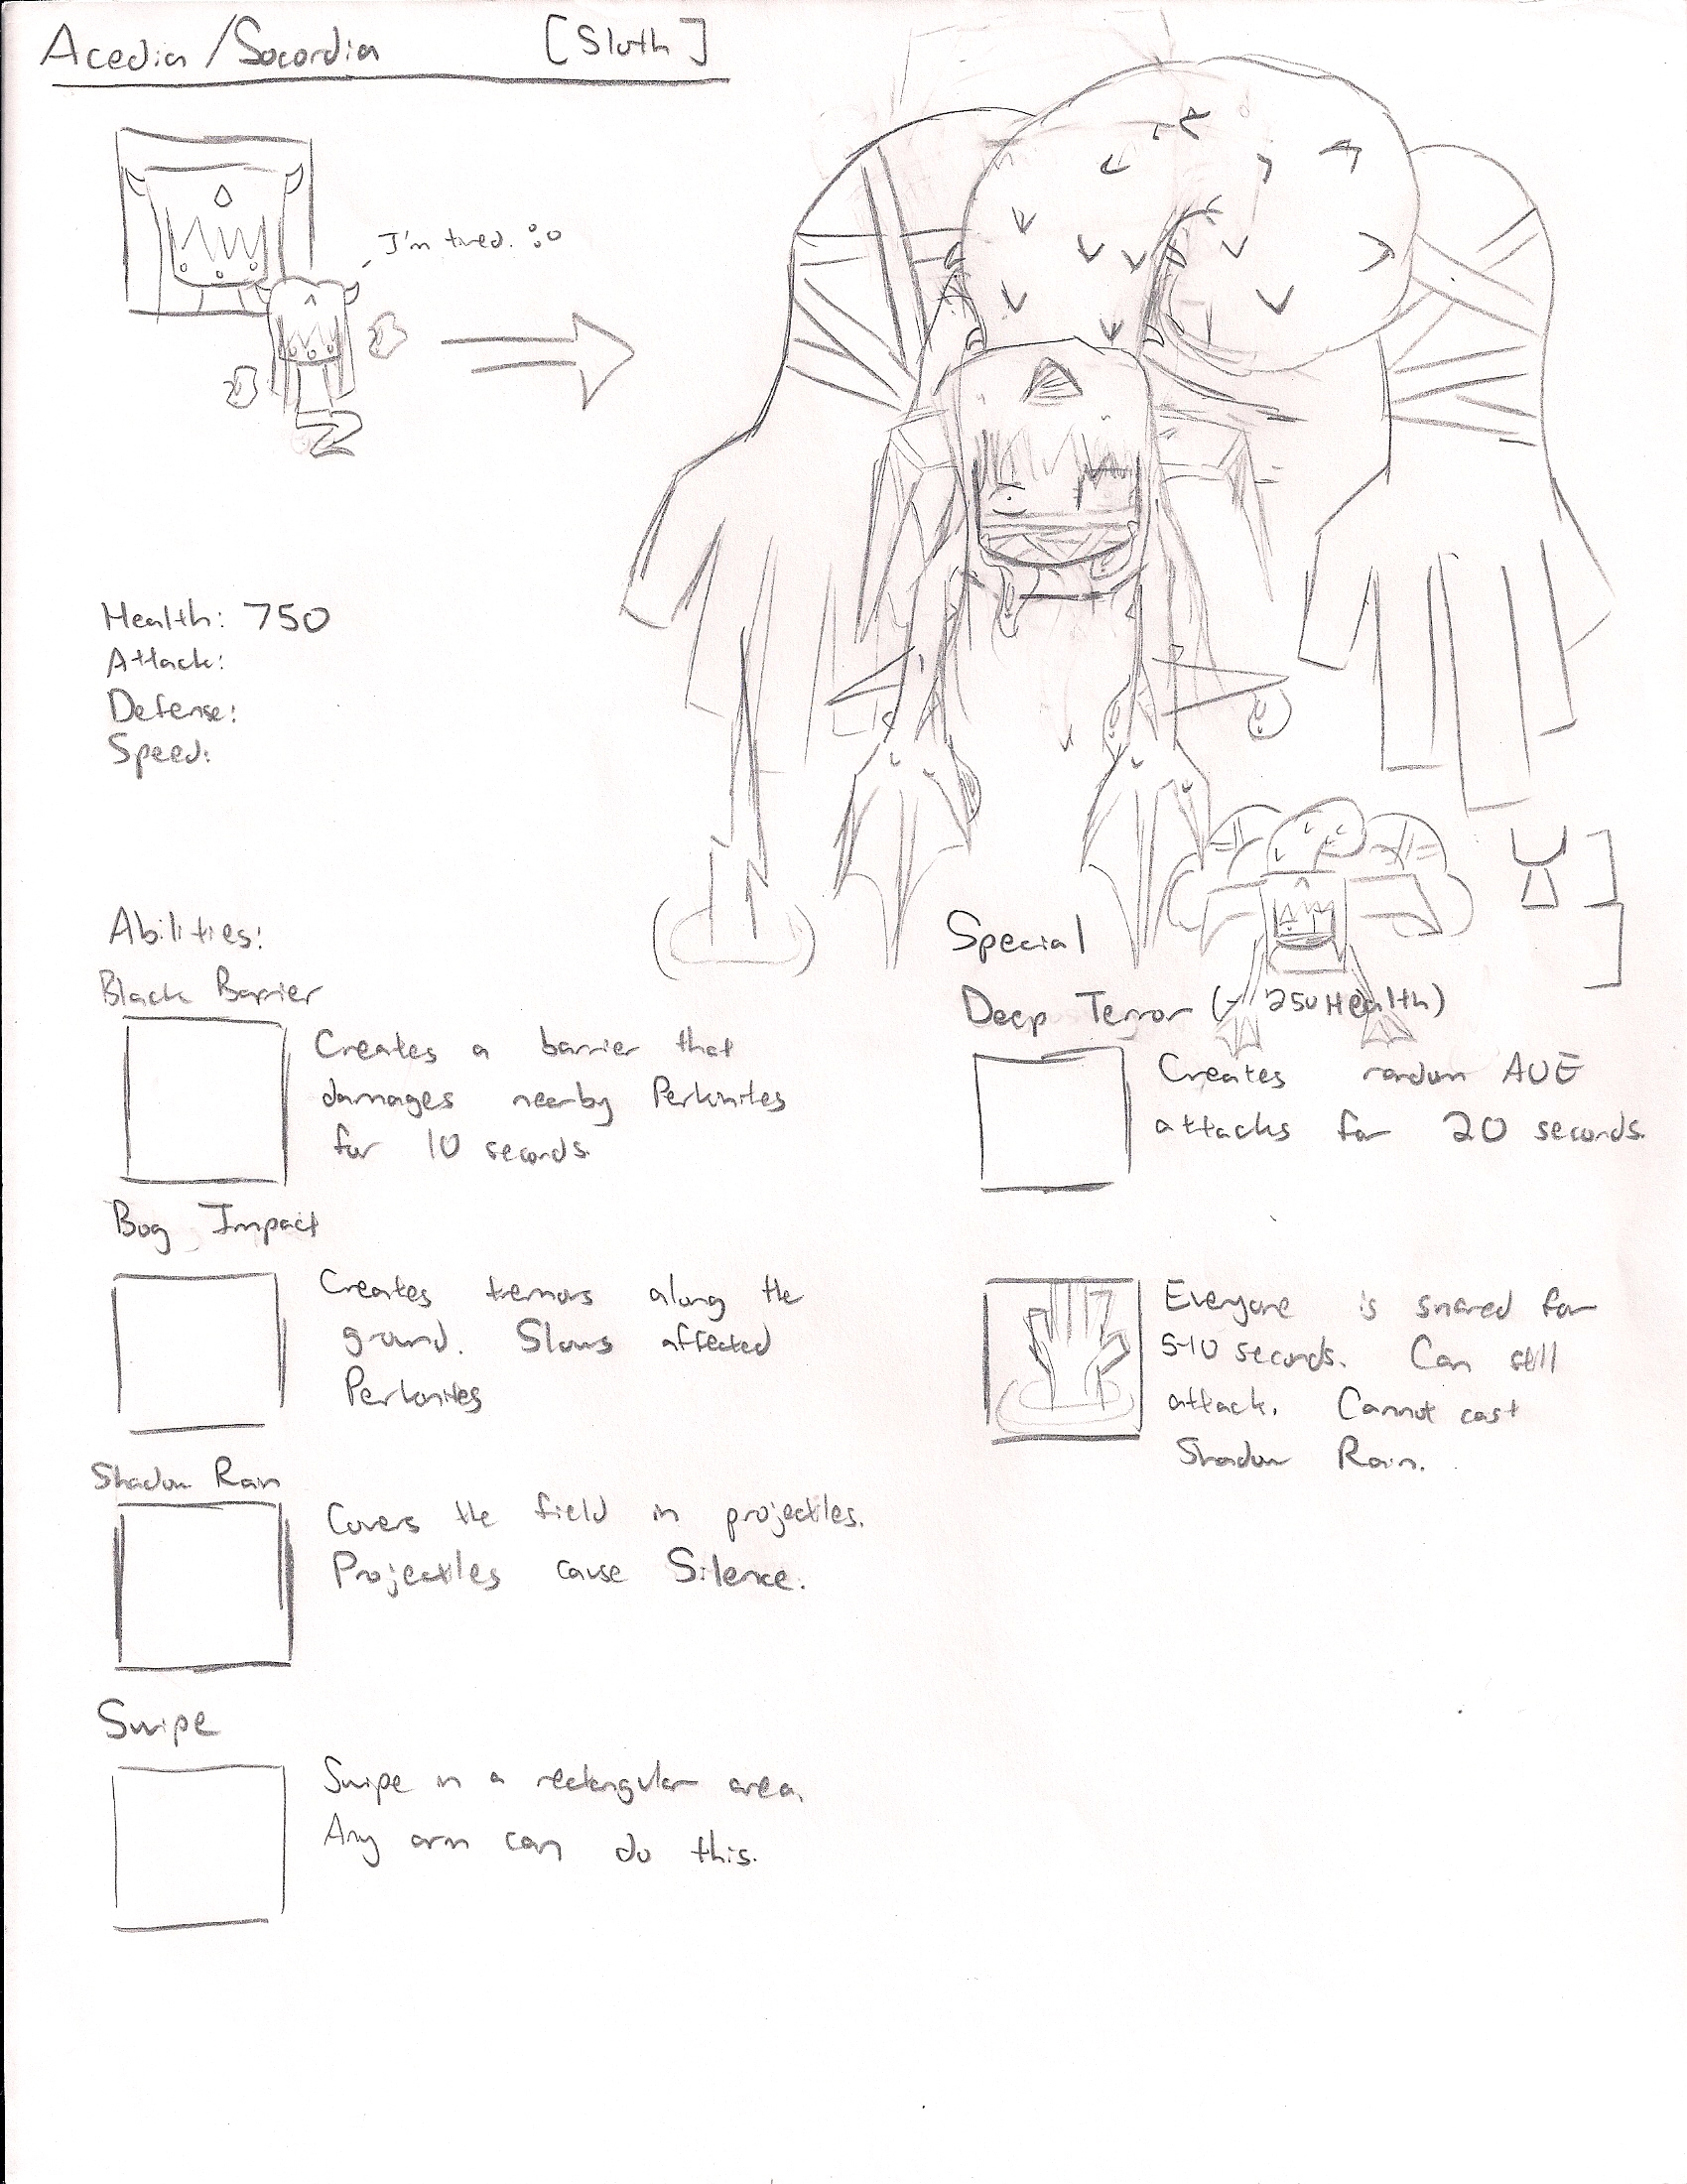 Acedia/Socordia [Sloth]
I'm tired.
Health: 750
Attack:
Defense:
Speed:
Abilities:
Black Barrier
Creates a barrier that
damages nearby Perkinites
for 10 seconds.
Bog Impact
Creates tremors along the
ground. Slows affected
Perkinites
Shadow Rain
Covers the field in projectiles.
Projectiles cause Silence.
Swipe
Swipe in a rectangular area.
Any arm can do this.
Special
Deep Terror (- 250 Health)
Creates random AOE
attacks for 20 seconds.
Everyone is snared for
5-10 seconds. Can still
attack. Cannot cast
Shadow Rain.